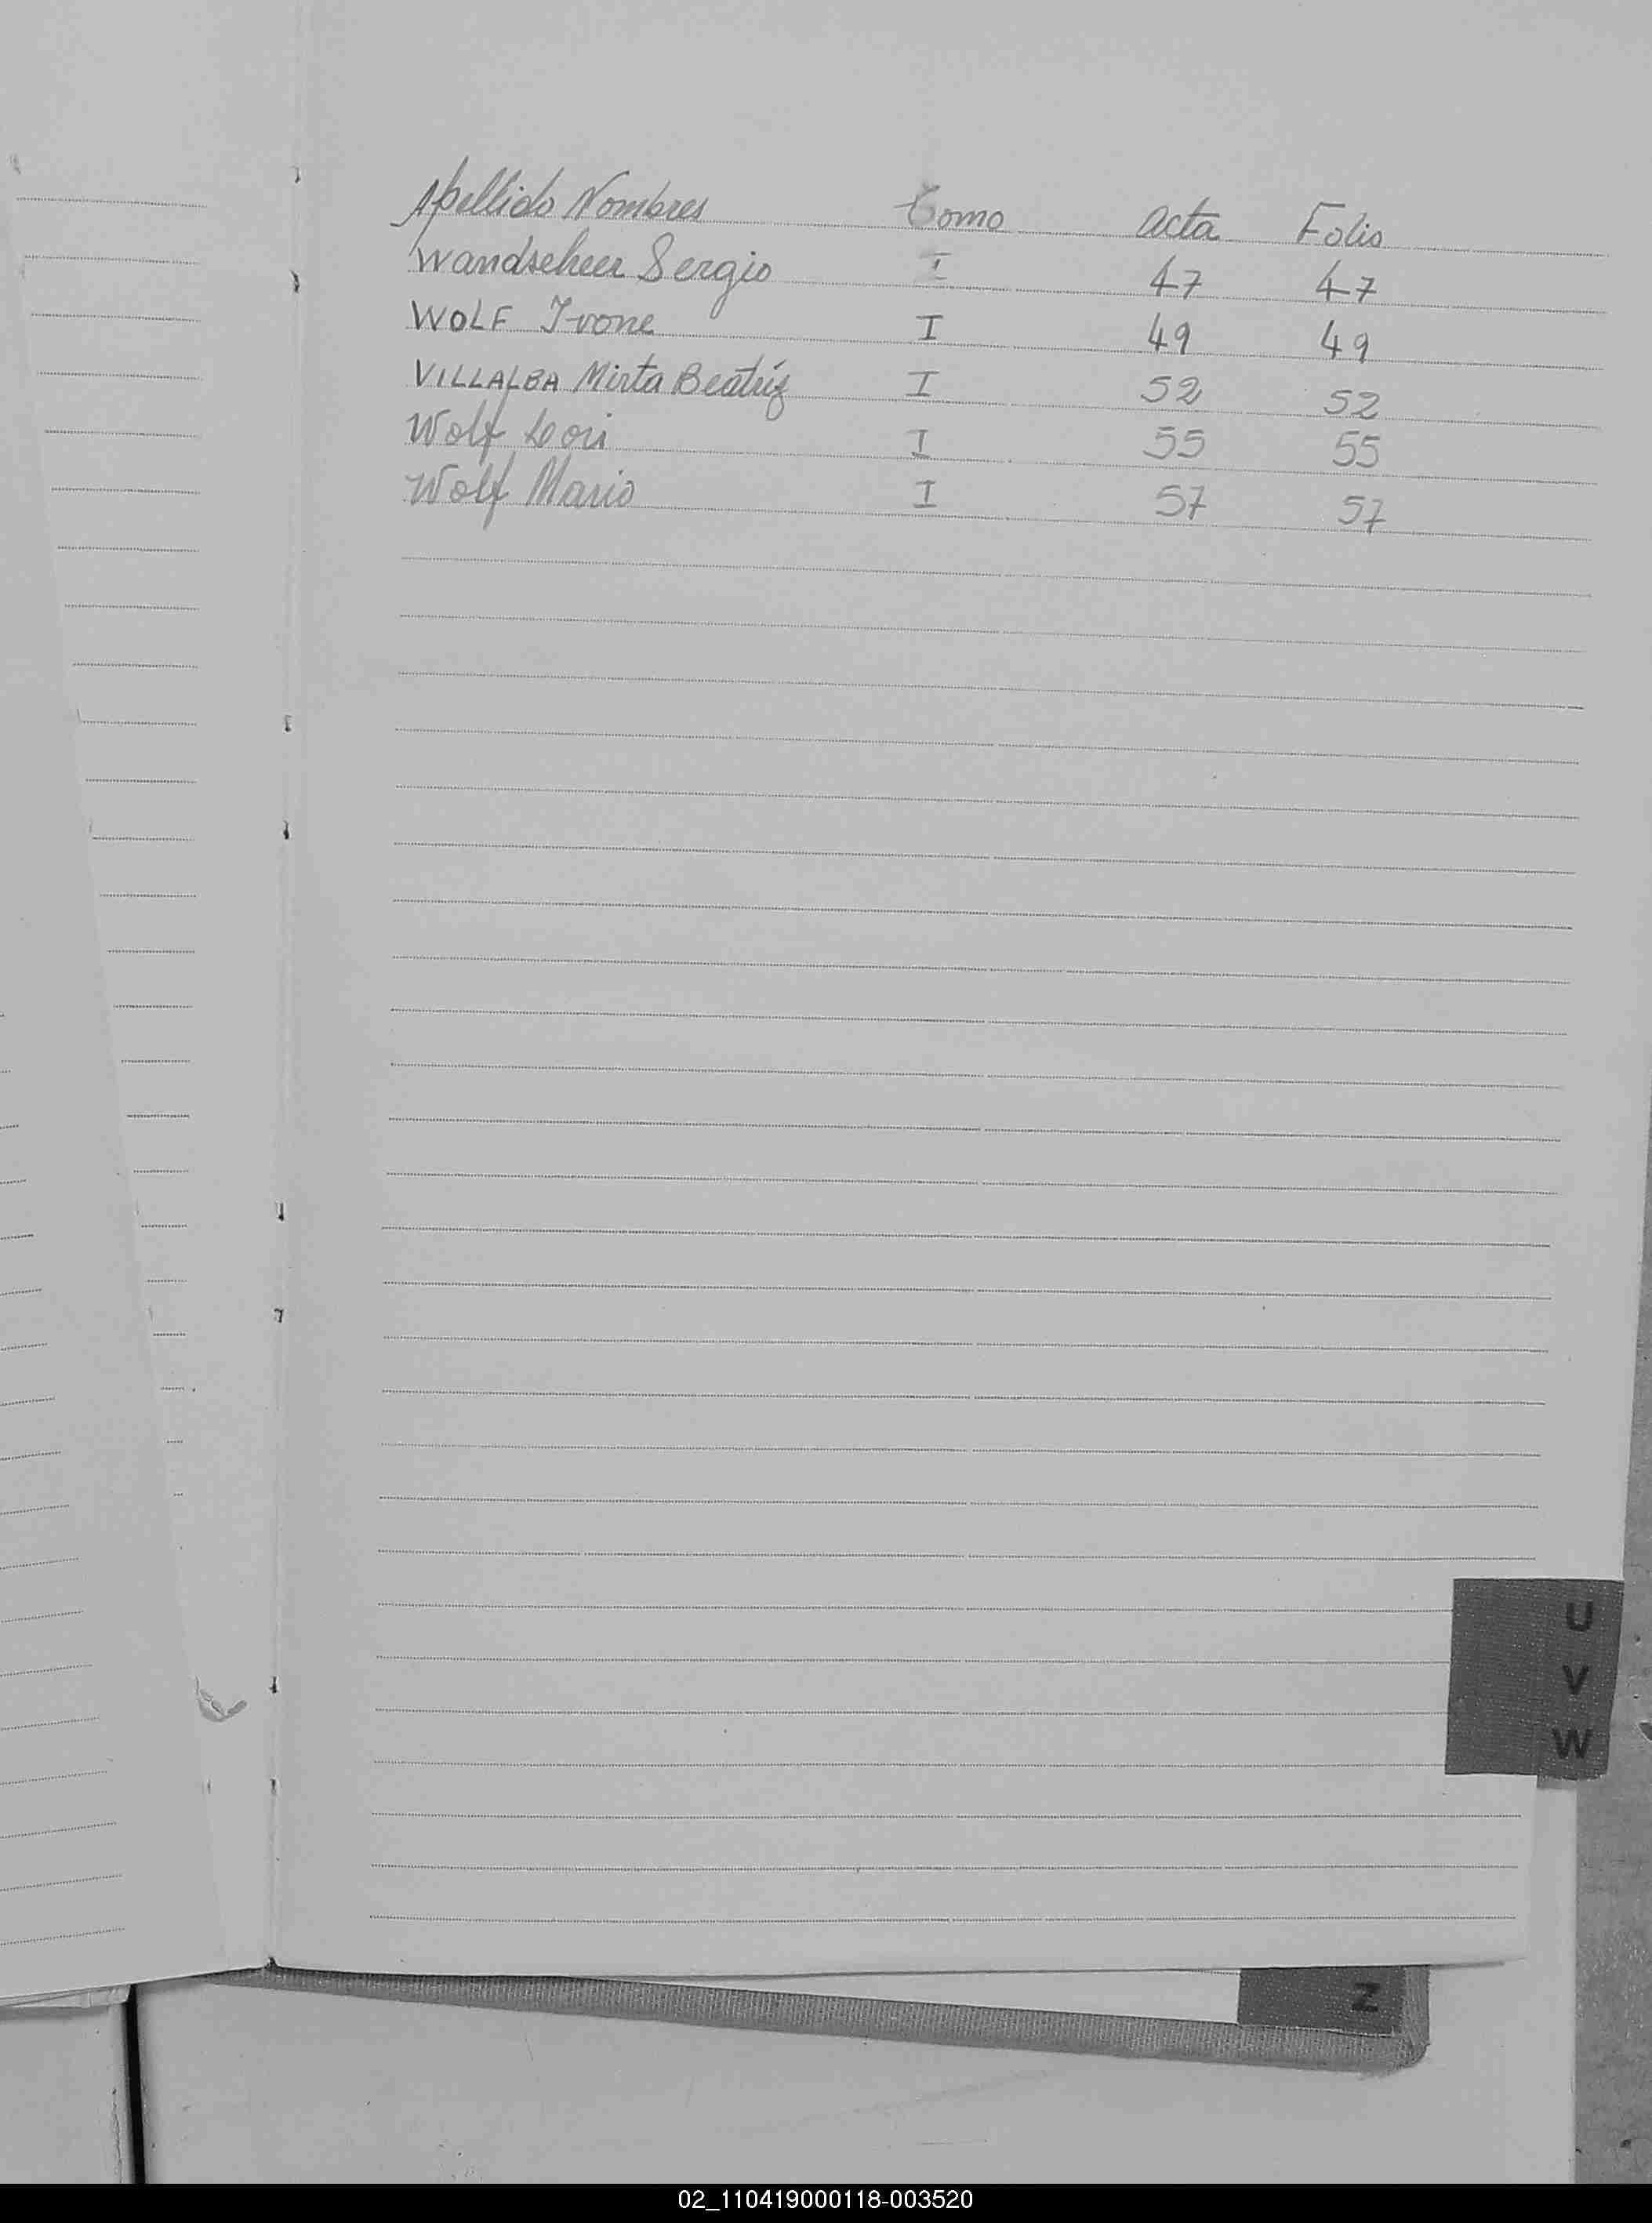 Apellido Nombres Tomo Acta Folio
Wandscheer Sergio I 47 47
WOLF Ivone I 49 49
VILLALBA Mirta Beatríz I 52 52
Wolf Lori I 55 55
Wolf Mario I 57 57
U
V
W
Z
02_110419000118-003520